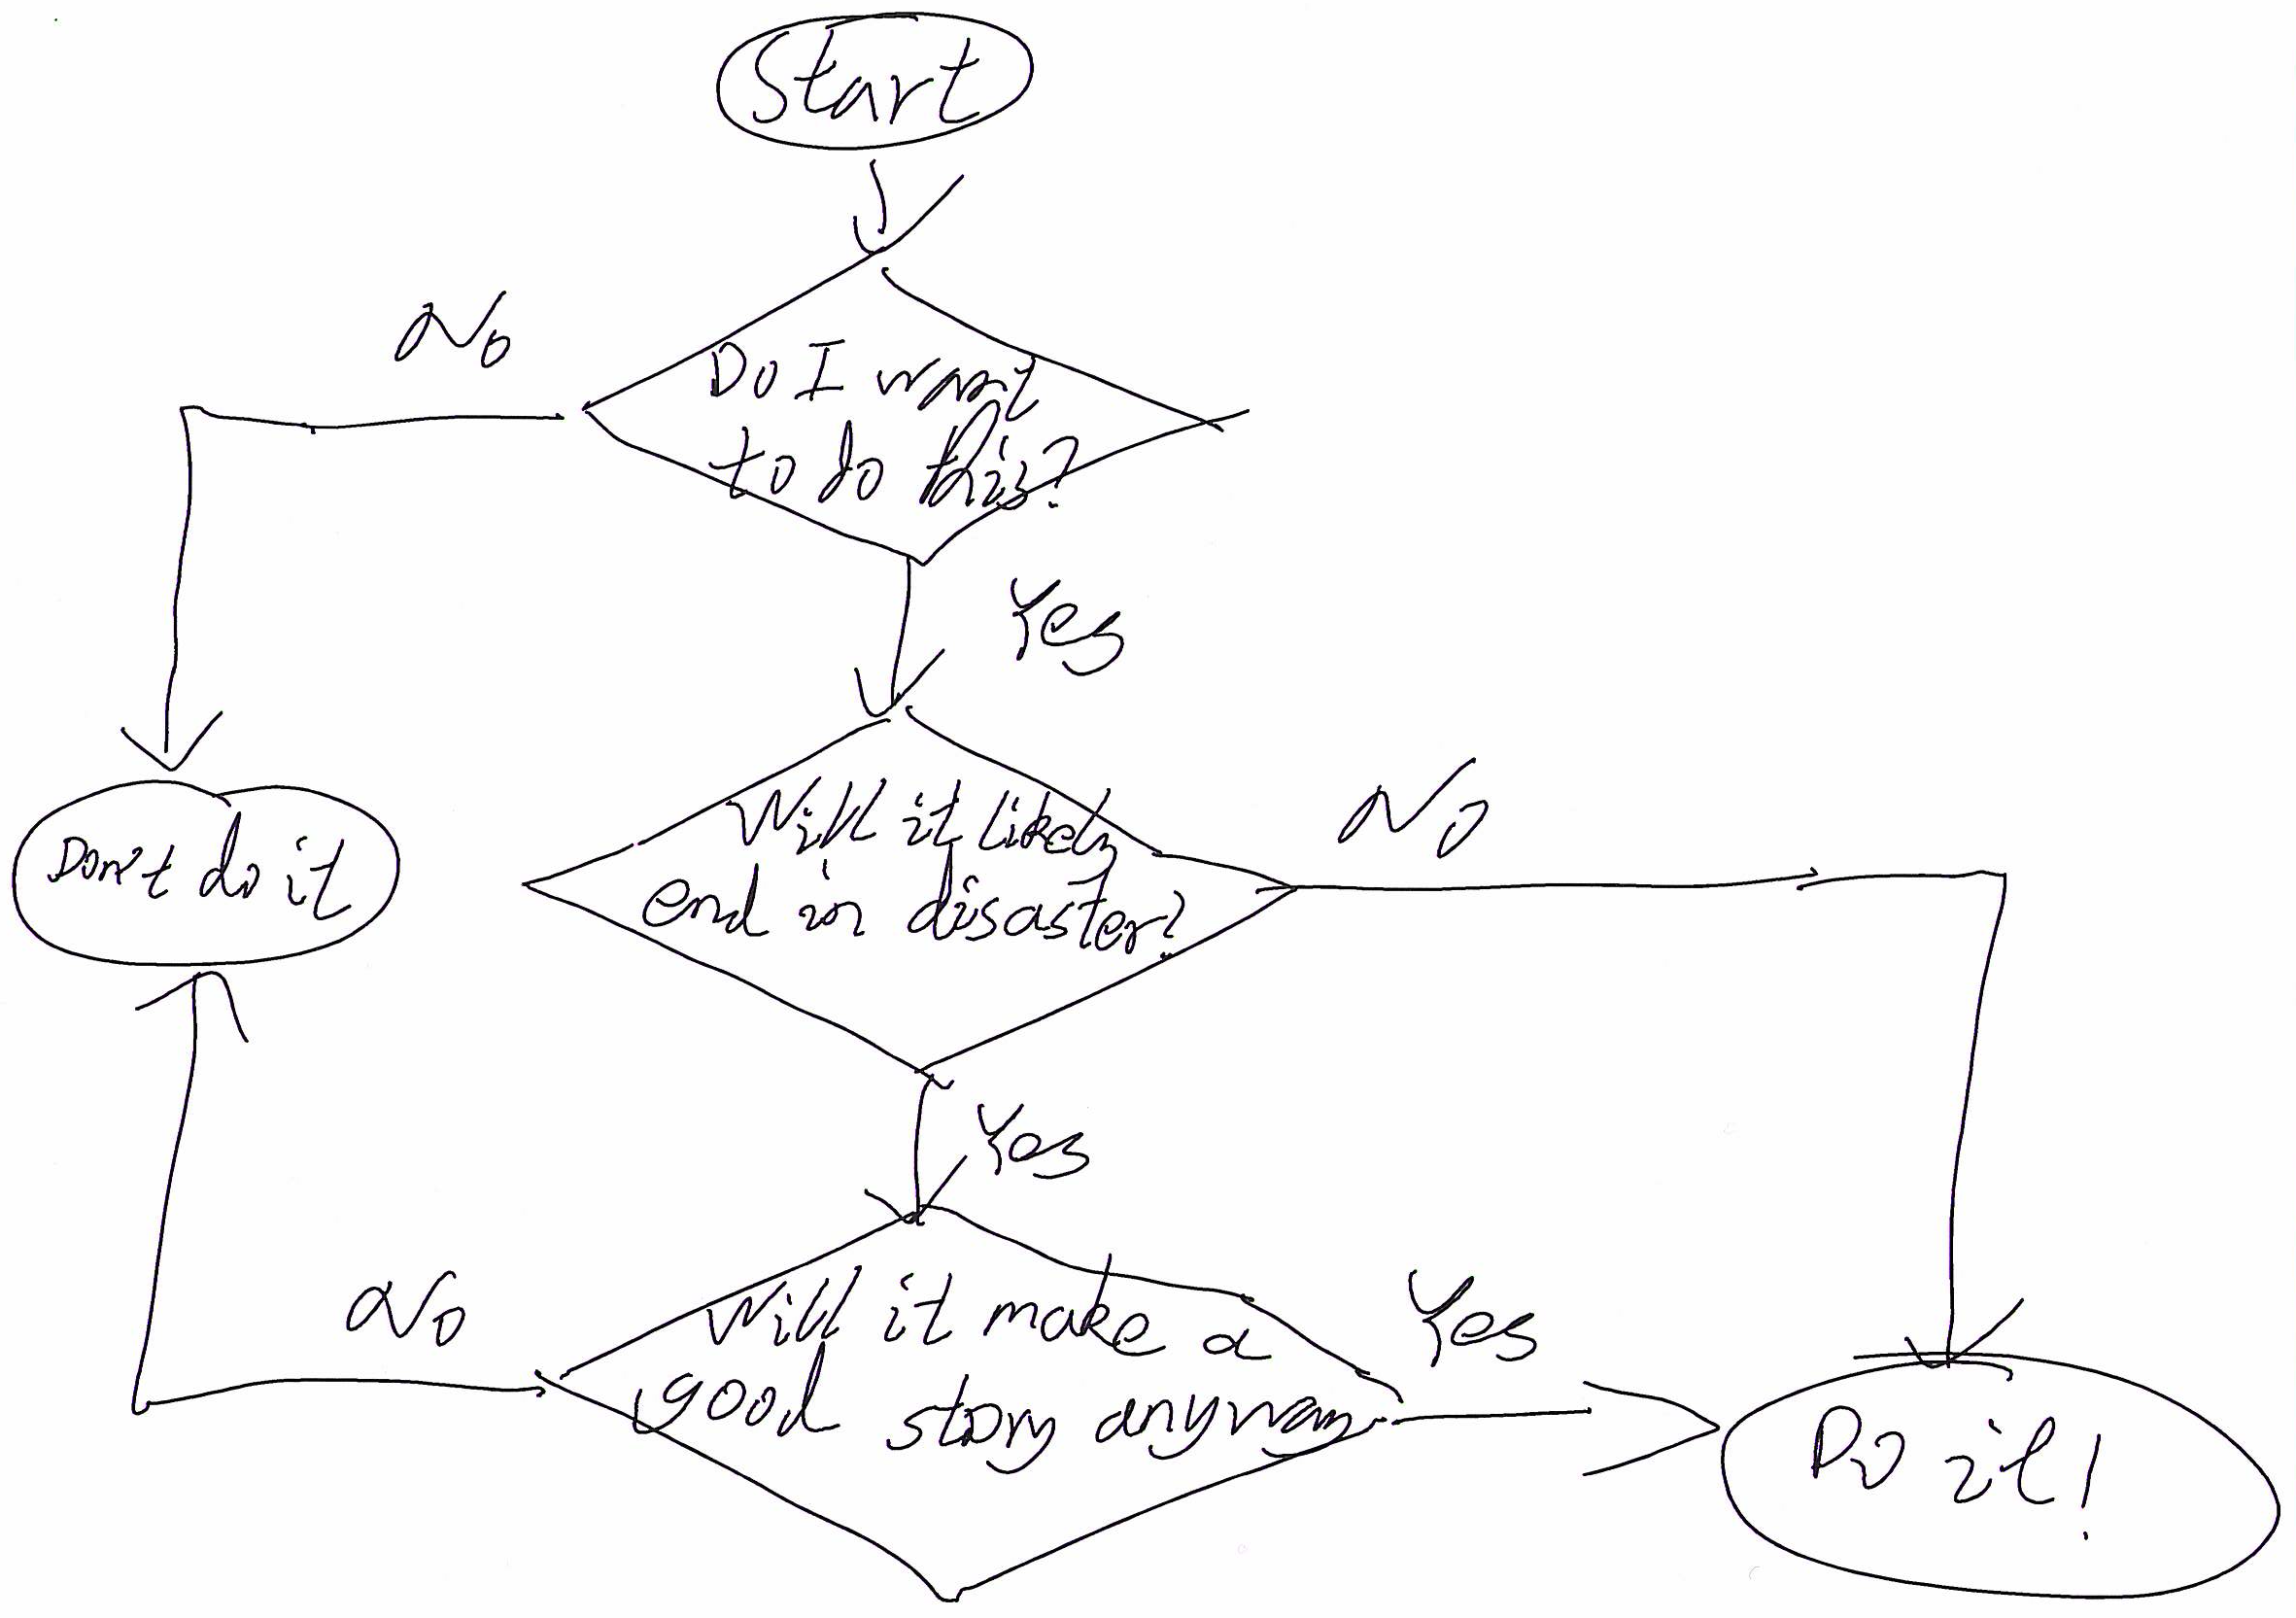 Start
No
Do I want
to do this?
Yes
Don't do it
Will it likely
end in disaster?
No
Yes
No
Will it make a
good story anyway
Yes
Do it!